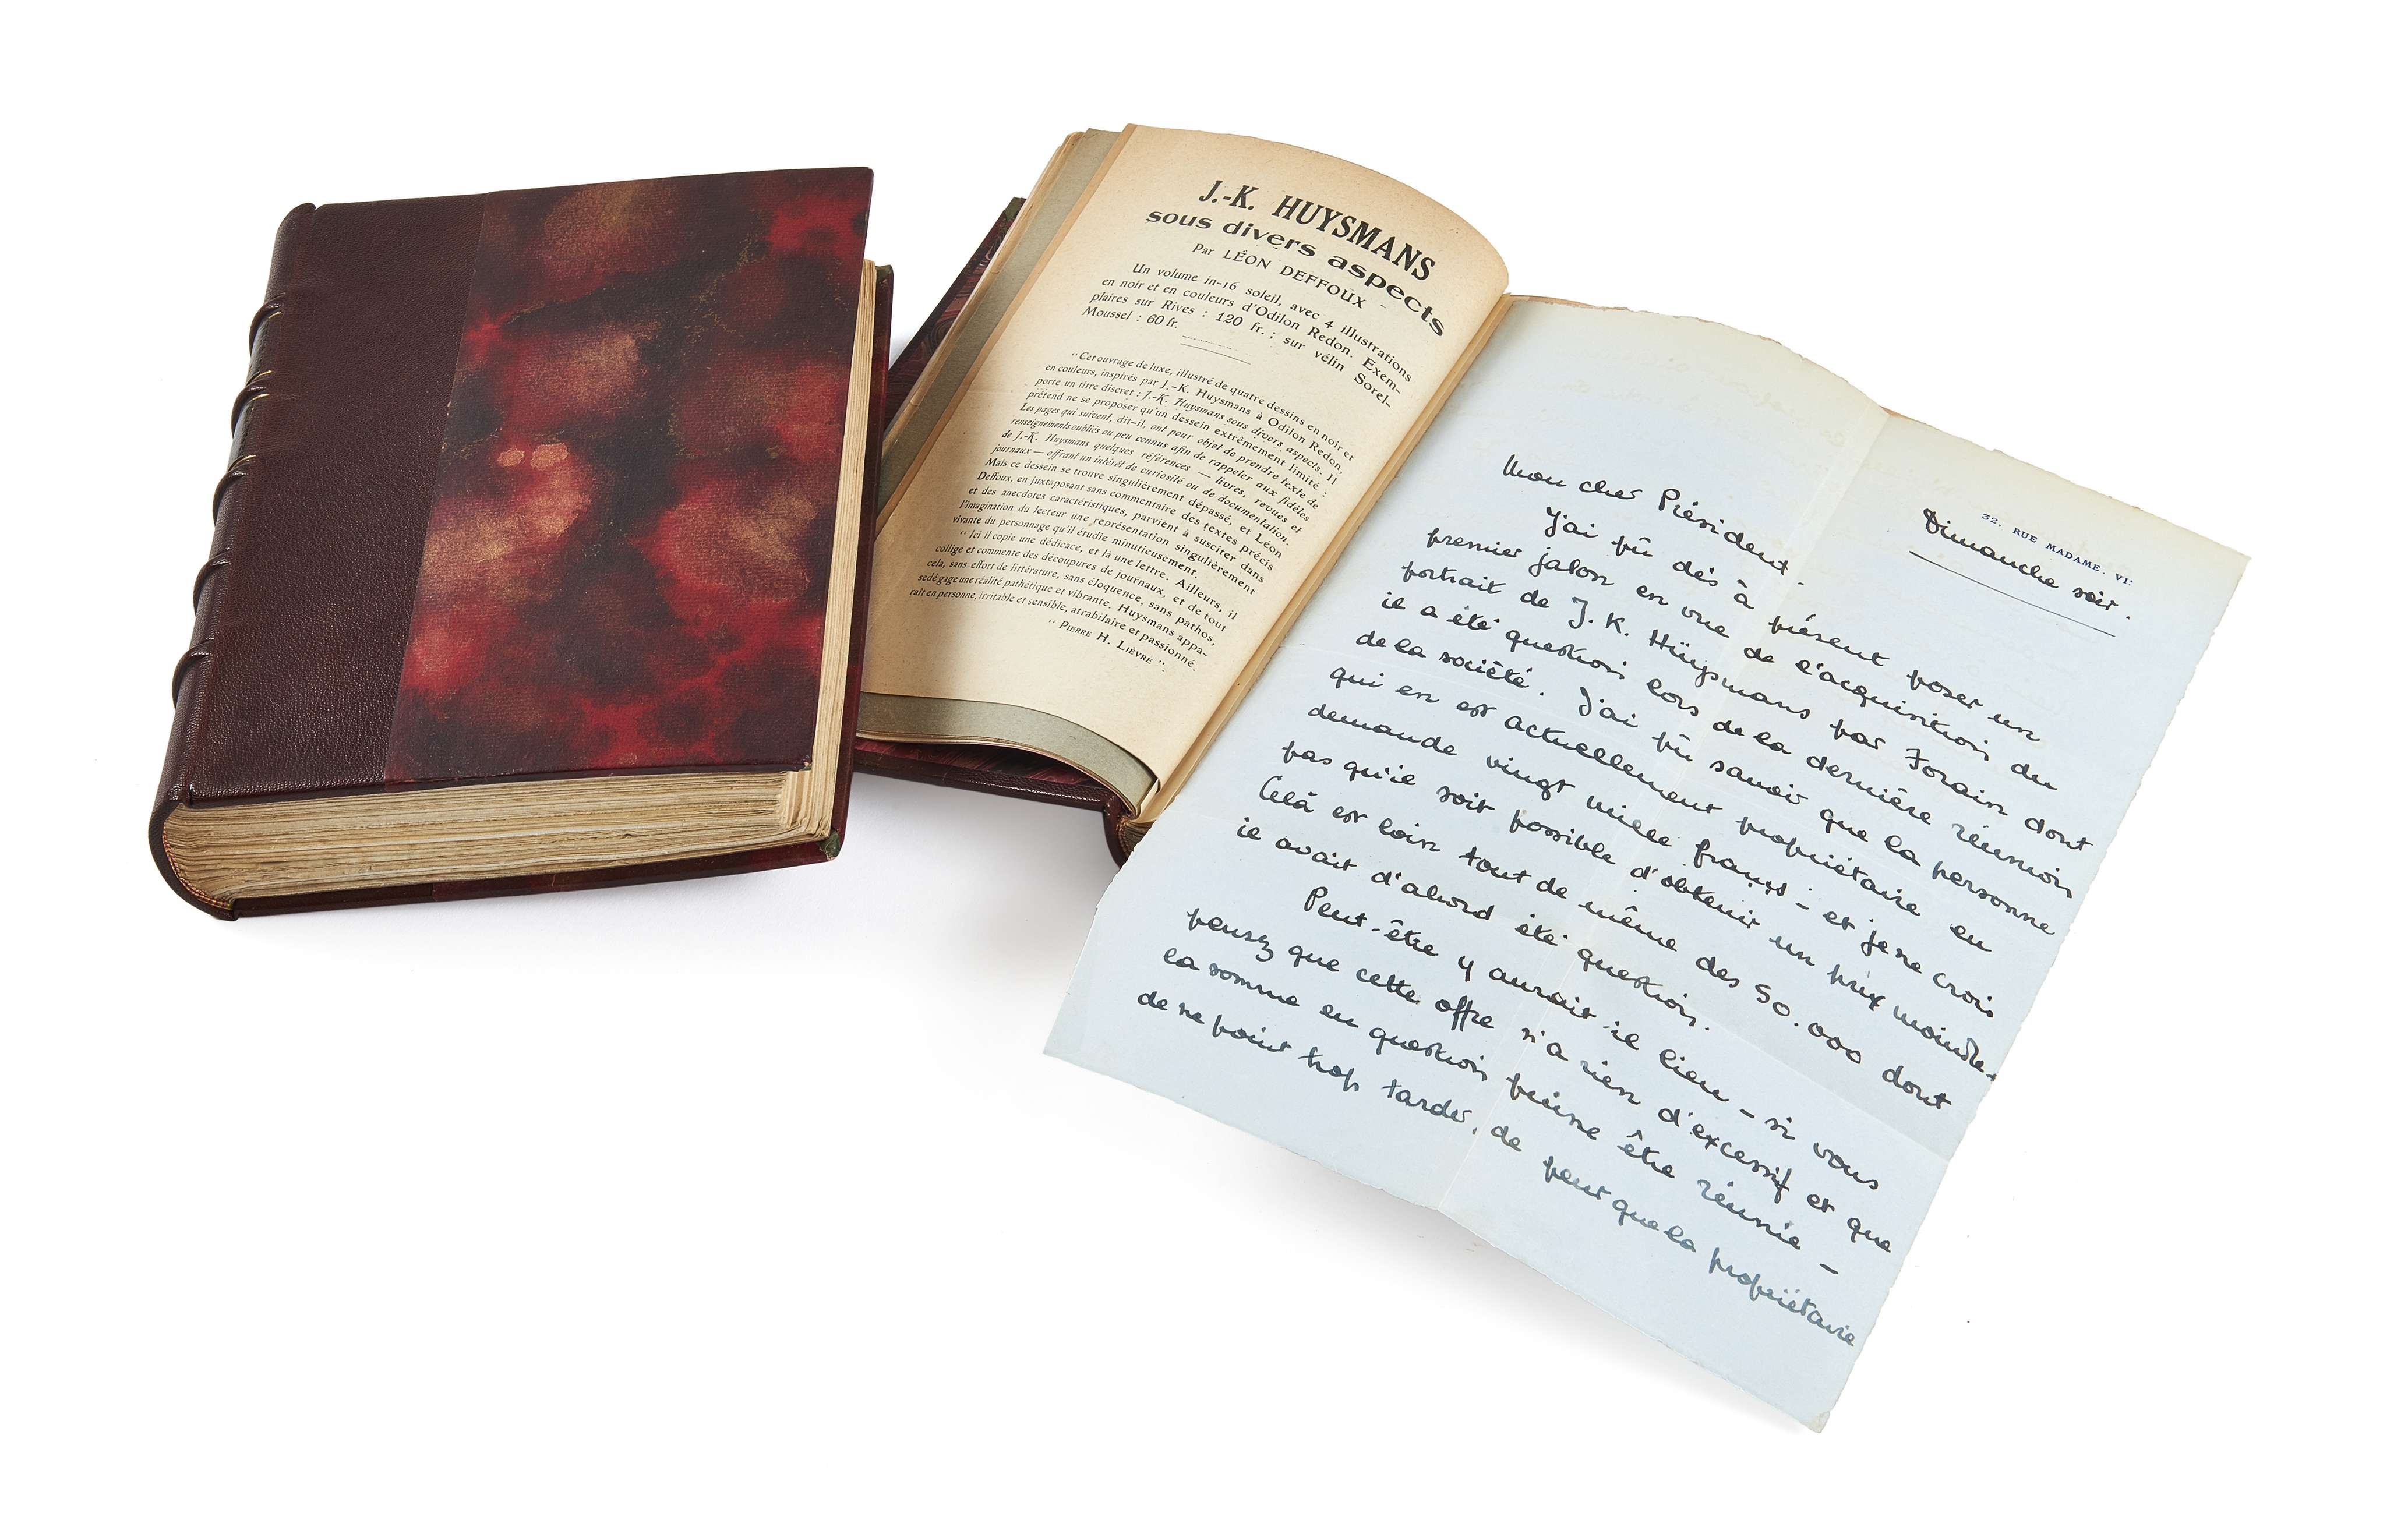 J.-K. HUYSMANS
sous divers aspects
Par LÉON DEFFOUX
Un volume in-16 soleil, avec 4 illustrations
en noir et en couleurs d'Odilon Redon. Exem-
plaires sur Rives : 120 fr. ; sur vélin Sorel-
Moussel : 60 fr.
“ Cet ouvrage de luxe, illustré de quatre dessins en noir et
en couleurs, inspirés par J.-K. Huysmans à Odilon Redon,
porte un titre discret : J.-K. Huysmans sous divers aspects. Il
prétend ne se proposer qu'un dessein extrêmement limité :
Les pages qui suivent, dit-il, ont pour objet de prendre texte de
renseignements oubliés ou peu connus afin de rappeler aux fidèles
de J.-K. Huysmans quelques références — livres, revues et
journaux — offrant un intérêt de curiosité ou de documentation.
Mais ce dessein se trouve singulièrement dépassé, et Léon
Deffoux, en juxtaposant sans commentaire des textes précis
et des anecdotes caractéristiques, parvient à susciter dans
l'imagination du lecteur une représentation singulièrement
vivante du personnage qu'il étudie minutieusement.
“ Ici il copie une dédicace, et là une lettre. Ailleurs, il
collige et commente des découpures de journaux, et de tout
cela, sans effort de littérature, sans éloquence, sans pathos,
se dégage une réalité pathétique et vibrante. Huysmans appa-
raît en personne, irritable et sensible, atrabilaire et passionné.
“ PIERRE H. LIÈVRE ”.
32. RUE MADAME. VI
Dimanche soir.
Mon cher Président.
J'ai pû dès à présent poser un
premier jalon en vue de l'acquisition du
portrait de J. K. Hüysmans par Forain dont
il a été question lors de la dernière réunion
de la société. J'ai pû savoir que la personne
qui en est actuellement propriétaire en
demande vingt mille francs – et je ne crois
pas qu'il soit possible d'obtenir un prix moindre.
Celà est loin tout de même des 50.000 dont
il avait d'abord été question.
Peut-être y aurait-il lieu – si vous
pensez que cette offre n'a rien d'excessif et que
la somme en question puisse être réunie –
de ne point trop tarder, de peur que la propriétaire